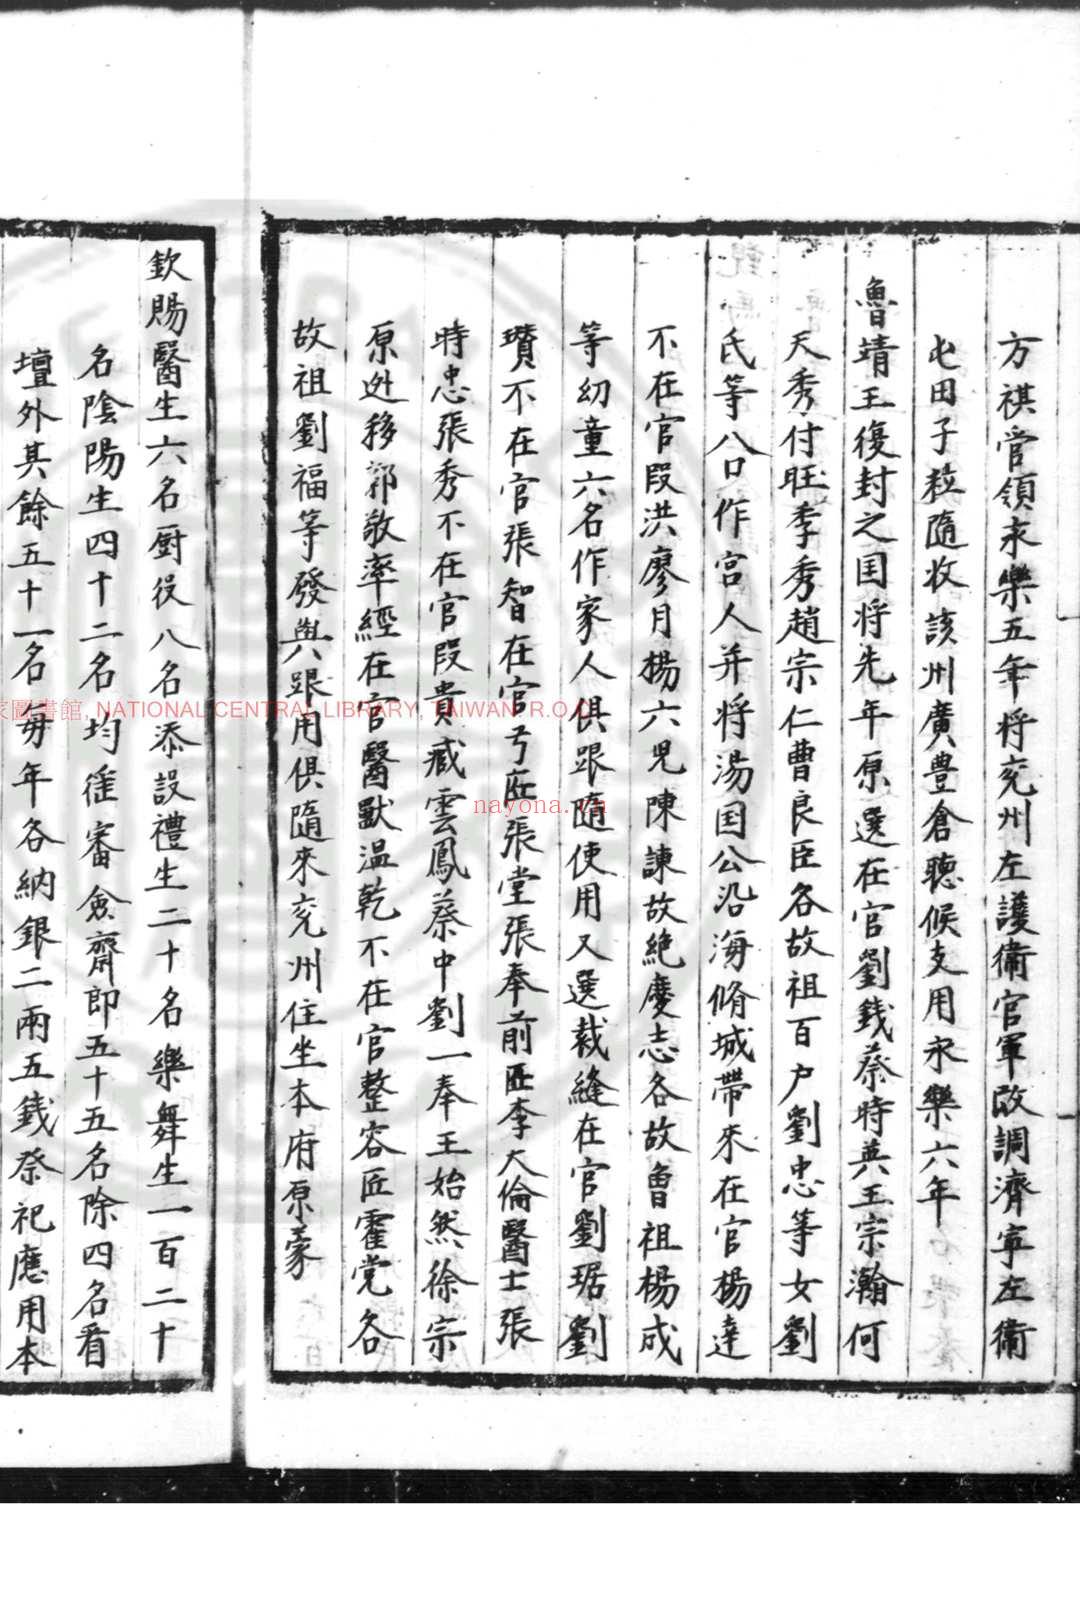 方祺管領永樂五年将兖州左護衛官軍改調濟寧左衛
屯田子粒隨收該州廣豊倉聽候支用永樂六年
魯靖王復封之国将先年原選在官劉錢蔡時英王宗瀚何
天秀付旺季秀趙宗仁曹良臣各故祖百户劉忠等女劉
氏等八口作宫人并将湯国公沿海脩城帶来在官楊達
不在官段洪廖月楊六児陳諫故絶慶志各故曾祖楊成
等幼童六名作家人俱跟隨使用又選裁縫在官劉琚劉
瓚不在官張智在官弓匠張堂張奉前匠李大倫醫士張
時忠張秀不在官段貴臧雲鳳蔡中劉一奉王始然徐宗
原迯移郭敬率經在官醫獸温乾不在官整容匠霍党各
故祖劉福等發與跟用俱隨來兖州住坐本府原蒙
欽賜醫生六名厨役八名添設禮生二十名樂舞生一百二十
名陰陽生四十二名均徭審僉齋郎五十五名除四名看
壇外其餘五十一名每年各納銀二兩五錢祭祀應用本
家圖書館, NATIONAL CENTRAL LIBRARY, TAIWAN R.O.C
nayona.cn